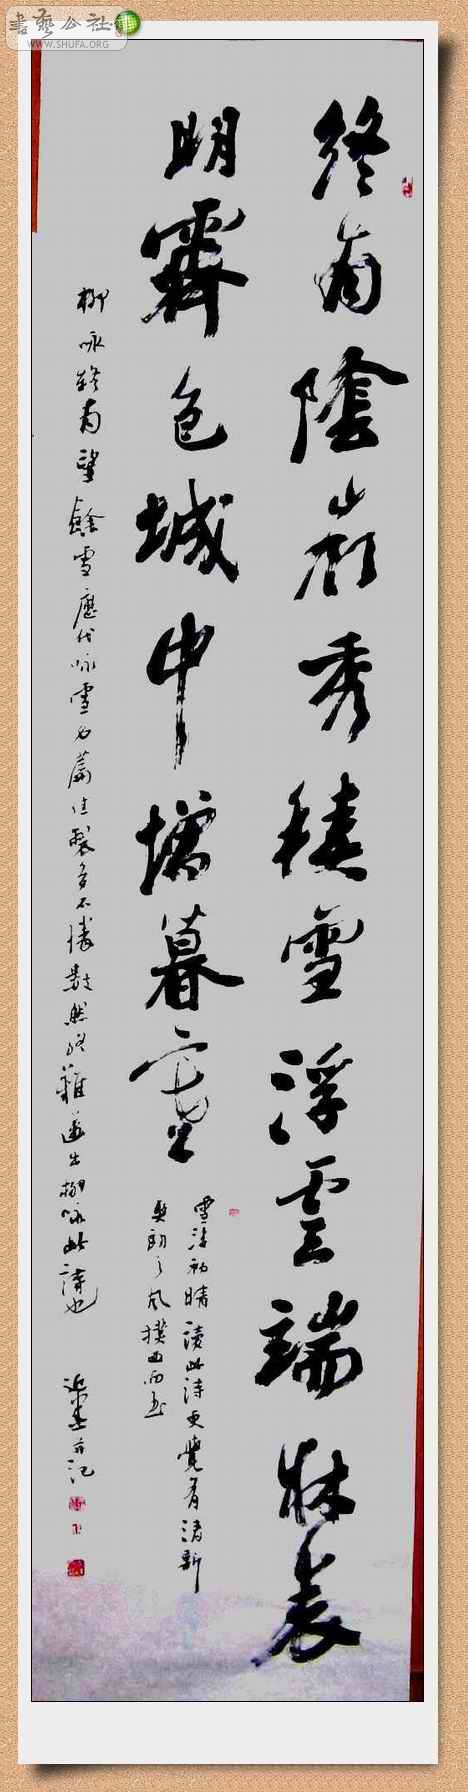 書藝公社
WWW.SHUFA.ORG
終南陰嶺秀積雪浮雲端林表
明霽色城中增暮寒
雪後初晴讀此詩更覺有清新
爽朗之風撲面而至
咏終南望餘雪歷代咏雪名篇佳製多不勝數然終難出咏此詩也
并記